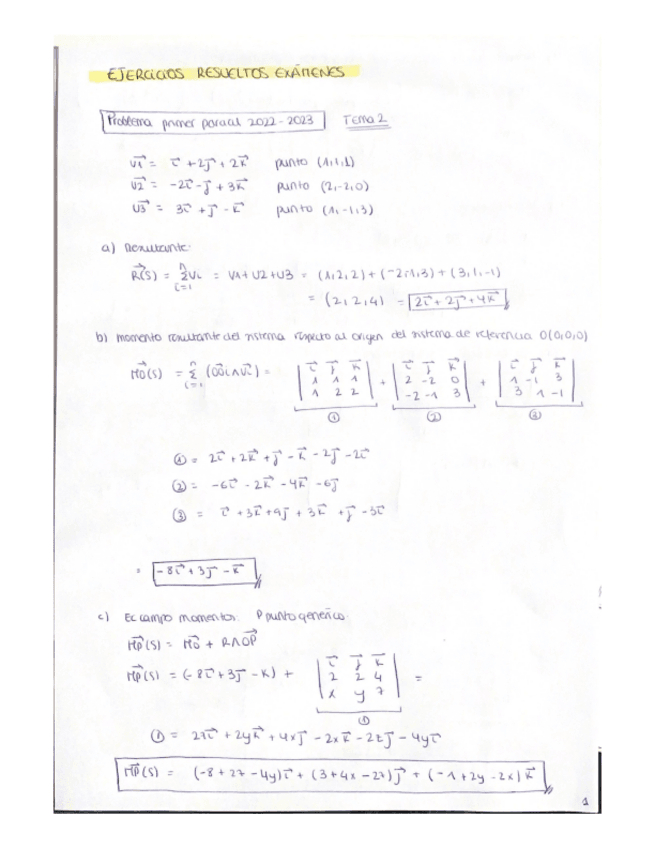 EJERCICIOS RESUELTOS EXÁMENES
Problema primer parcial 2022-2023 Tema 2
v1 = i + 2j + 2k punto (1,1,1)
v2 = -2i - j + 3k punto (2,-2,0)
v3 = 3i + j - k punto (1,-1,3)
a) Resultante:
R(S) = Σ vi = v1 + v2 + v3 = (1,2,2) + (-2,-1,3) + (3,1,-1)
i=1
= (2,2,4) = 2i + 2j + 4k
b) momento resultante del sistema respecto al origen del sistema de referencia O(0,0,0)
MO(S) = Σ (OOi ∧ vi) = | i j k | + | i j k | + | i j k |
| 1 1 1 | | 2 -2 0 | | 1 -1 3 |
| 1 2 2 | | -2 -1 3 | | 3 1 -1 |
① ② ③
① = 2i + 2k + j - k - 2j - 2i
② = -6i - 2k - 4k - 6j
③ = i + 3k + 9j + 3k + j - 3i
= -8i + 3j - k
c) Ec campo momentos. P punto genérico.
MP(S) = MO + R ∧ OP
MP(S) = (-8i + 3j - k) + | i j k | =
| 2 2 4 |
| x y z |
①
① = 2zi + 2yk + 4xj - 2xk - 2zj - 4yi
MP(S) = (-8 + 2z - 4y)i + (3 + 4x - 2z)j + (-1 + 2y - 2x)k
1